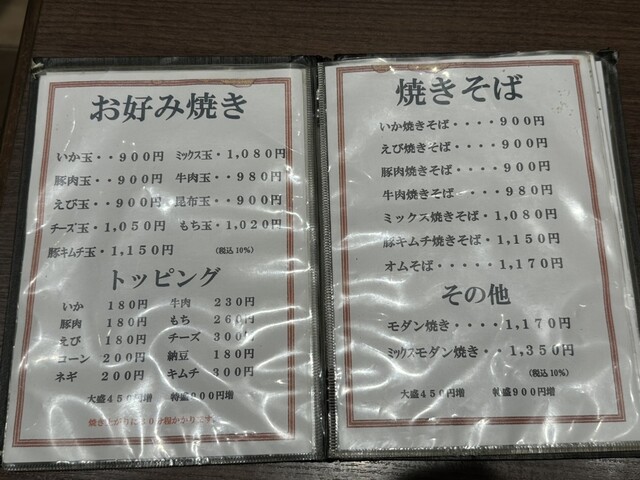 お好み焼き
いか玉・・900円 ミックス玉・1,080円
豚肉玉・・900円 牛肉玉・・980円
えび玉・・900円 昆布玉・・900円
チーズ玉・1,050円 もち玉・1,020円
豚キムチ玉・1,150円 (税込10%)
トッピング
いか 180円 牛肉 230円
豚肉 180円 もち 260円
えび 180円 チーズ 300円
コーン 200円 納豆 180円
ネギ 200円 キムチ 300円
大盛450円増 特盛900円増
焼き上がりに20分程かかります。
焼きそば
いか焼きそば・・・・900円
えび焼きそば・・・・900円
豚肉焼きそば・・・・900円
牛肉焼きそば・・・・980円
ミックス焼きそば・1,080円
豚キムチ焼きそば・1,150円
オムそば・・・・・1,170円
その他
モダン焼き・・・・1,170円
ミックスモダン焼き・・1,350円
(税込10%)
大盛450円増 特盛900円増